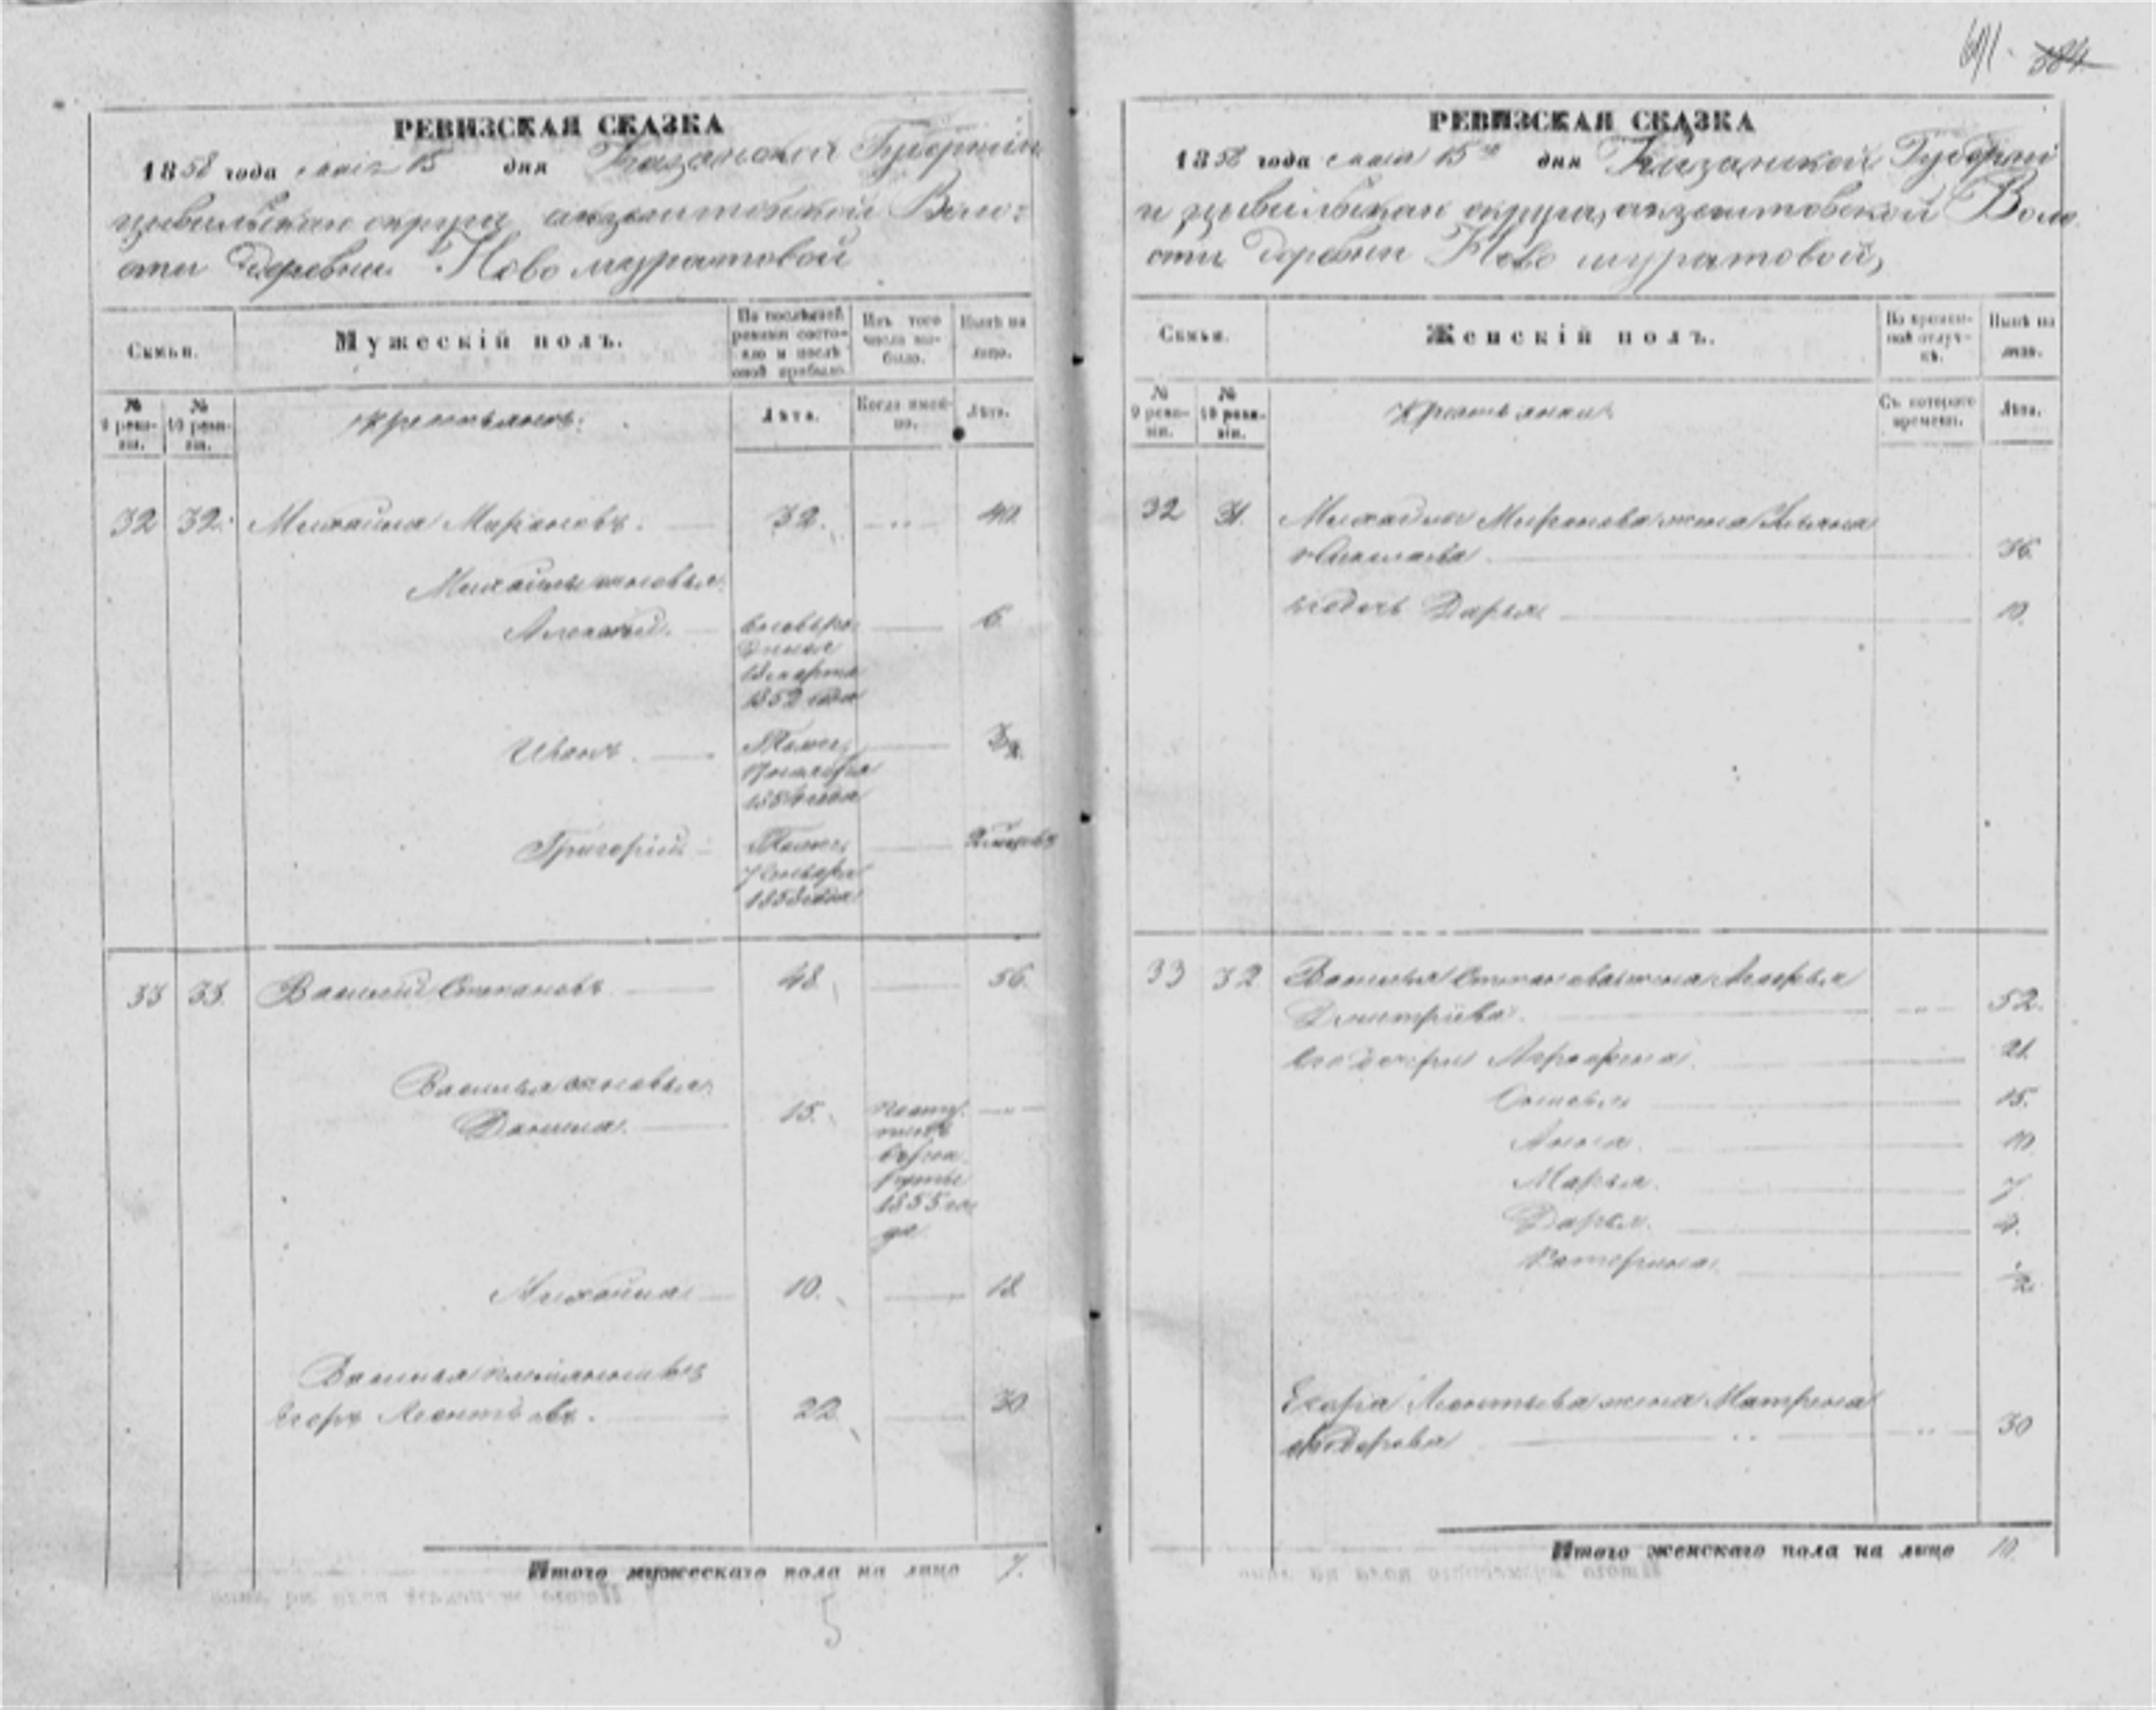 691. 384
РЕВИЗСКАЯ СКАЗКА
1858 года мая 15 дня Казанской Губернии
цивильскаго округа, акзеитовской Воло-
сти деревни Ново муратовой
Семьи.
Мужескій полъ.
По послѣдней ревизіи состо-
яло и послѣ оной прибыло.
Изъ того числа вы-
было.
Нынѣ на лицо.
№ 9 реви-
зіи.
№ 10 реви-
зіи.
Крестьянъ:
Лѣта.
Когда имен-
но.
Лѣта.
32 32. Михайла Мироновъ. 32. 40.
Михайлы сыновья:
Алексѣй. 6.
новоро
жденъ
марта
1852 года
Иванъ. Тоже,
1854 года
Григорій Тоже,
Января
1858 года
33 33. Василий Степановъ 48 56.
Василья сыновья:
Данила. 15. посту-
пилъ
въ рек-
руты
1855 го-
да
Михайла 10. 18
Василья племянникъ
Егоръ Леонтьевъ. 22 30.
Итого мужескаго пола на лицо 7.
5
РЕВИЗСКАЯ СКАЗКА
1858 года мая 15 дня Казанской Губерні
и цивильскаго округа, акзеитовской Воло
сти деревни Ново муратовой,
Семьи.
Женскій полъ.
Во времен-
ной отлуч-
кѣ.
Нынѣ на лицо.
№ 9 реви-
зіи.
№ 10 реви-
зіи.
Крестьянки:
Съ котораго времени.
Лѣта.
32 31. Михайлы Миронова жена Ульяна
Николаева 36.
его дочь Дарья 10.
33 32 Василья Степанова жена
Дмитріева. 52.
его дочери Аграфена. 21.
15.
Анна. 10
Марья. 7
Дарья. 4.
Катерина 1/2
Егора Леонтьева жена Матрена
Федорова 30
Итого женскаго пола на лицо 10.